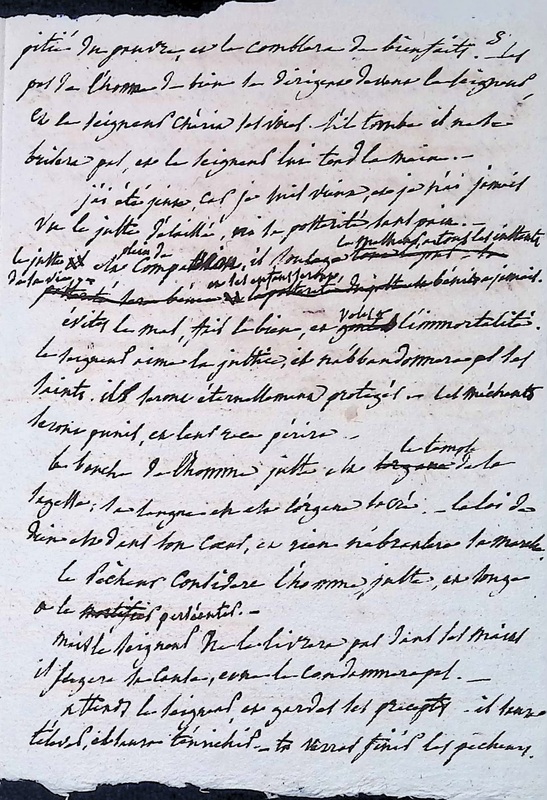 pitié du pauvre, et le comblera de bienfaits. 8 - les
pas de l'homme de bien se dirigent devant le seigneur,
et le seigneur chérira ses voies. s'il tombe il ne se
brisera pas, car le seigneur lui tend la main. -
j'ai été jeune, car je suis vieux, et je n'ai jamais
vu le juste délaissé, ni sa postérité sans pain. -
le malheur, a tous les instants
le juste est plein de compassion, il soulage
de la vie et les enfants seront bénis a jamais.
évites le mal, fais le bien, et voles à l'immortalité.
le seigneur aime la justice, et n'abbandonnera pas ses
saints. ils seront éternellement protégés. - les méchants
seront punis, et leur race périra. -
la bouche de l'homme juste est le temple de la
sagesse; sa langue en est l'organe sacré. - la loi de
dieu est dans son coeur, et rien n'ébranlera sa marche.
le pêcheur considere l'homme juste, et songe
a le persécuter. -
mais le seigneur ne le livrera pas dans ses mains
il jugera sa cause, et ne le condamnera pas. -
attends le seigneur et gardes ses preceptes - il
les pecheurs.